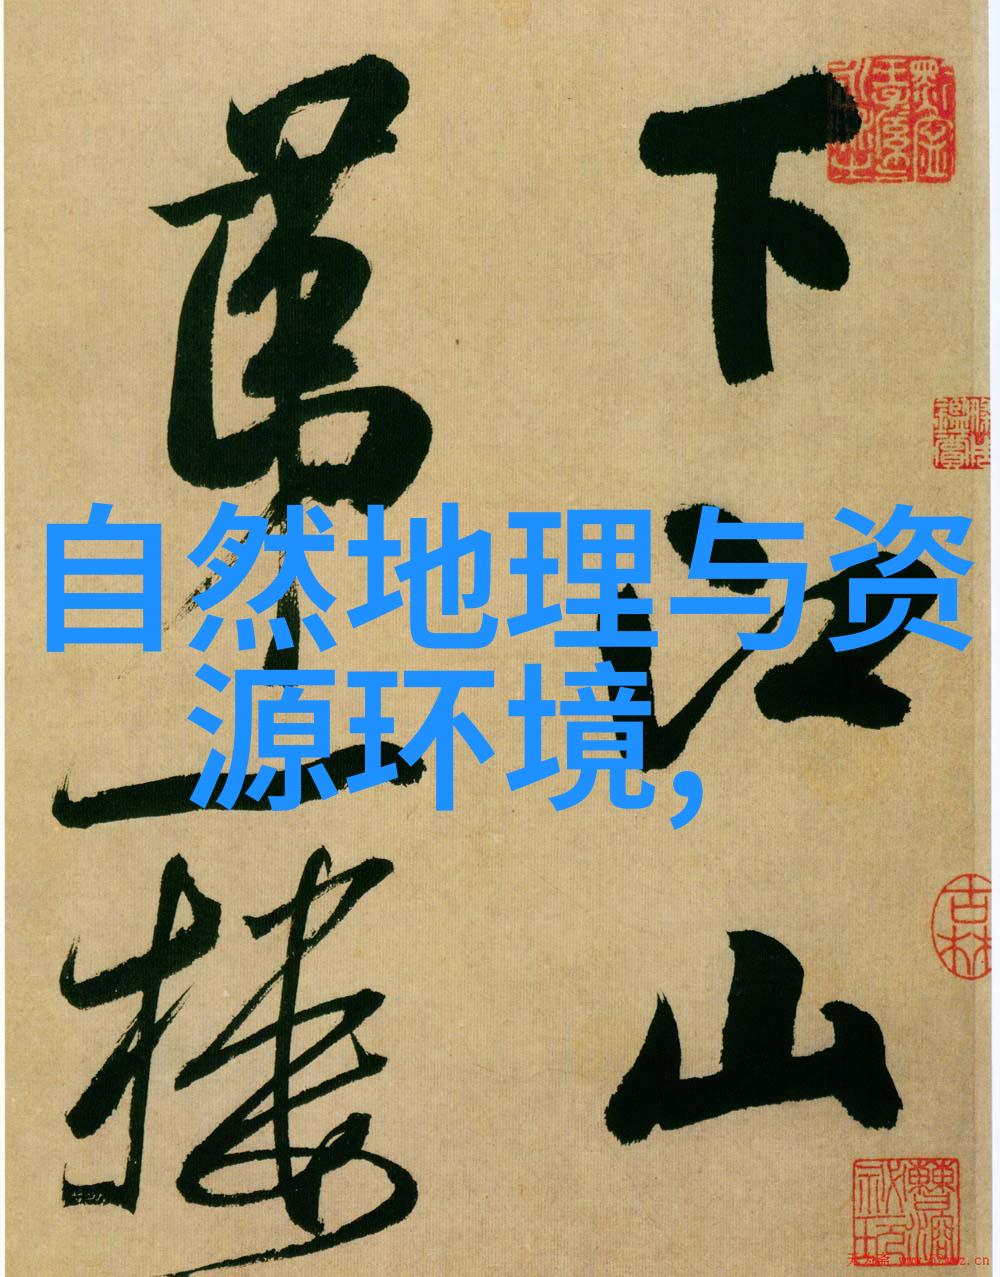 自然地理与资
源环境,
下江山
第一樓